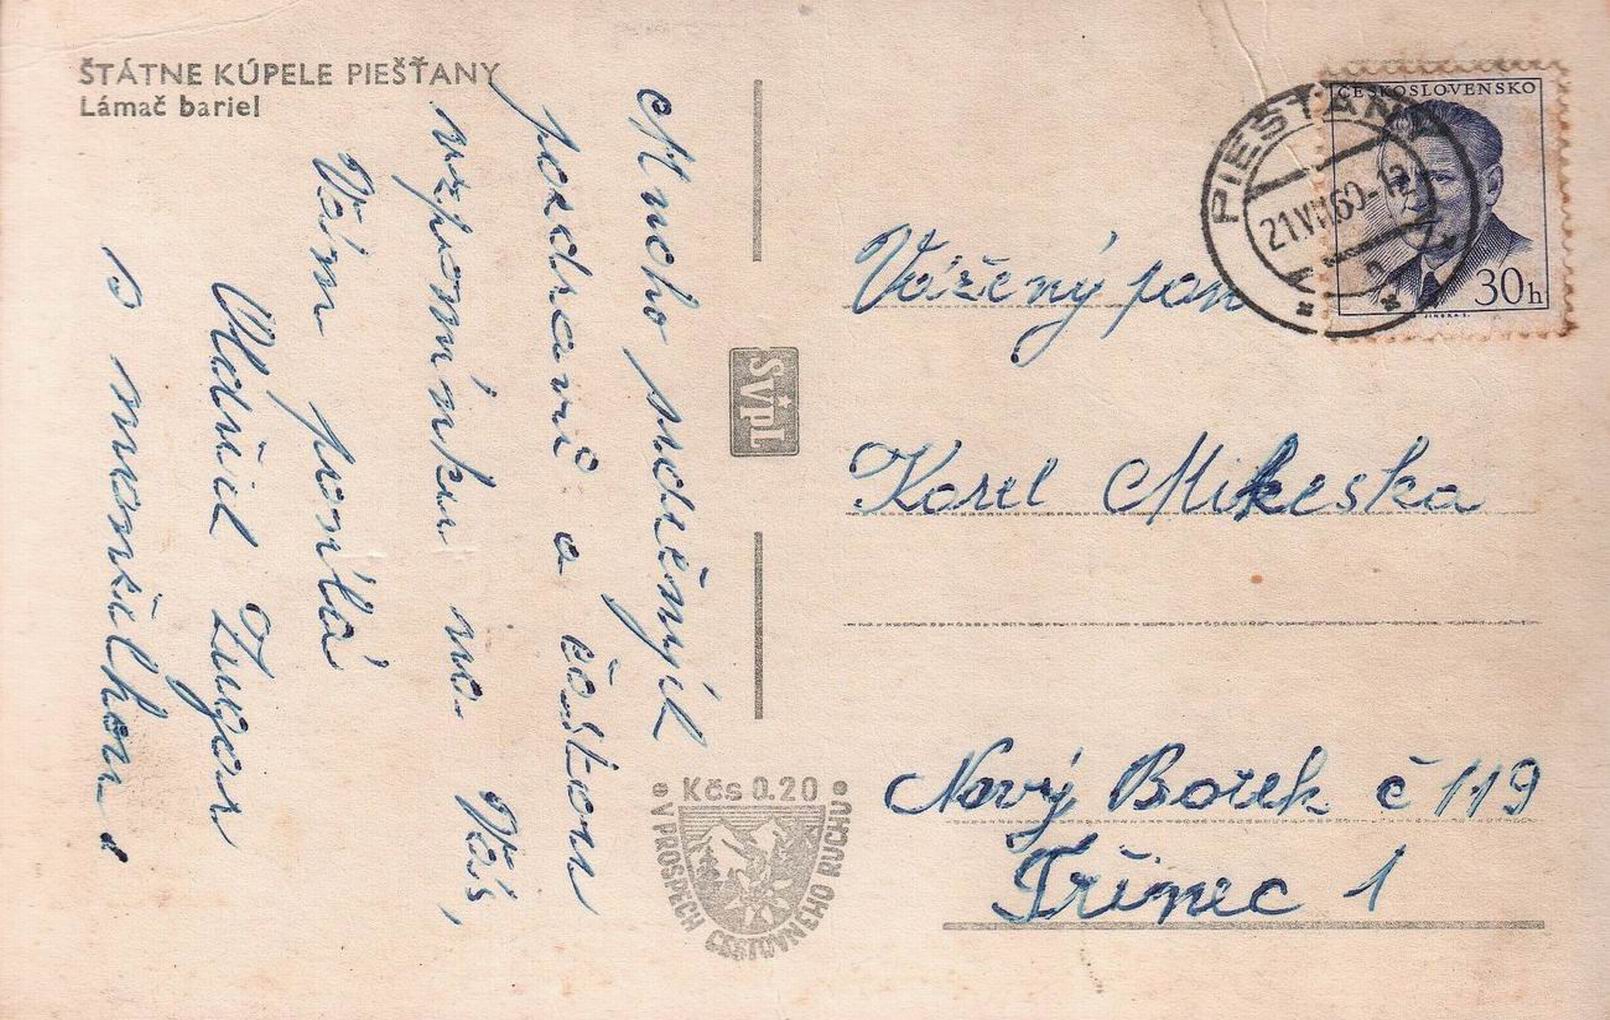 ŠTÁTNE KÚPELE PIEŠŤANY
Lámač bariel
Mnoho srdečných
pozdravů a častou
vzpomínku na Vás,
Vám posílá
Oldřich
s manželkou.
SVPL
Kčs 0.20
V PROSPECH CESTOVNÉHO RUCHU
ČESKOSLOVENSKO
30h
PIEŠŤANY
Vážený pan
Karel Mikeska
Nový Borek č 119
Třinec 1